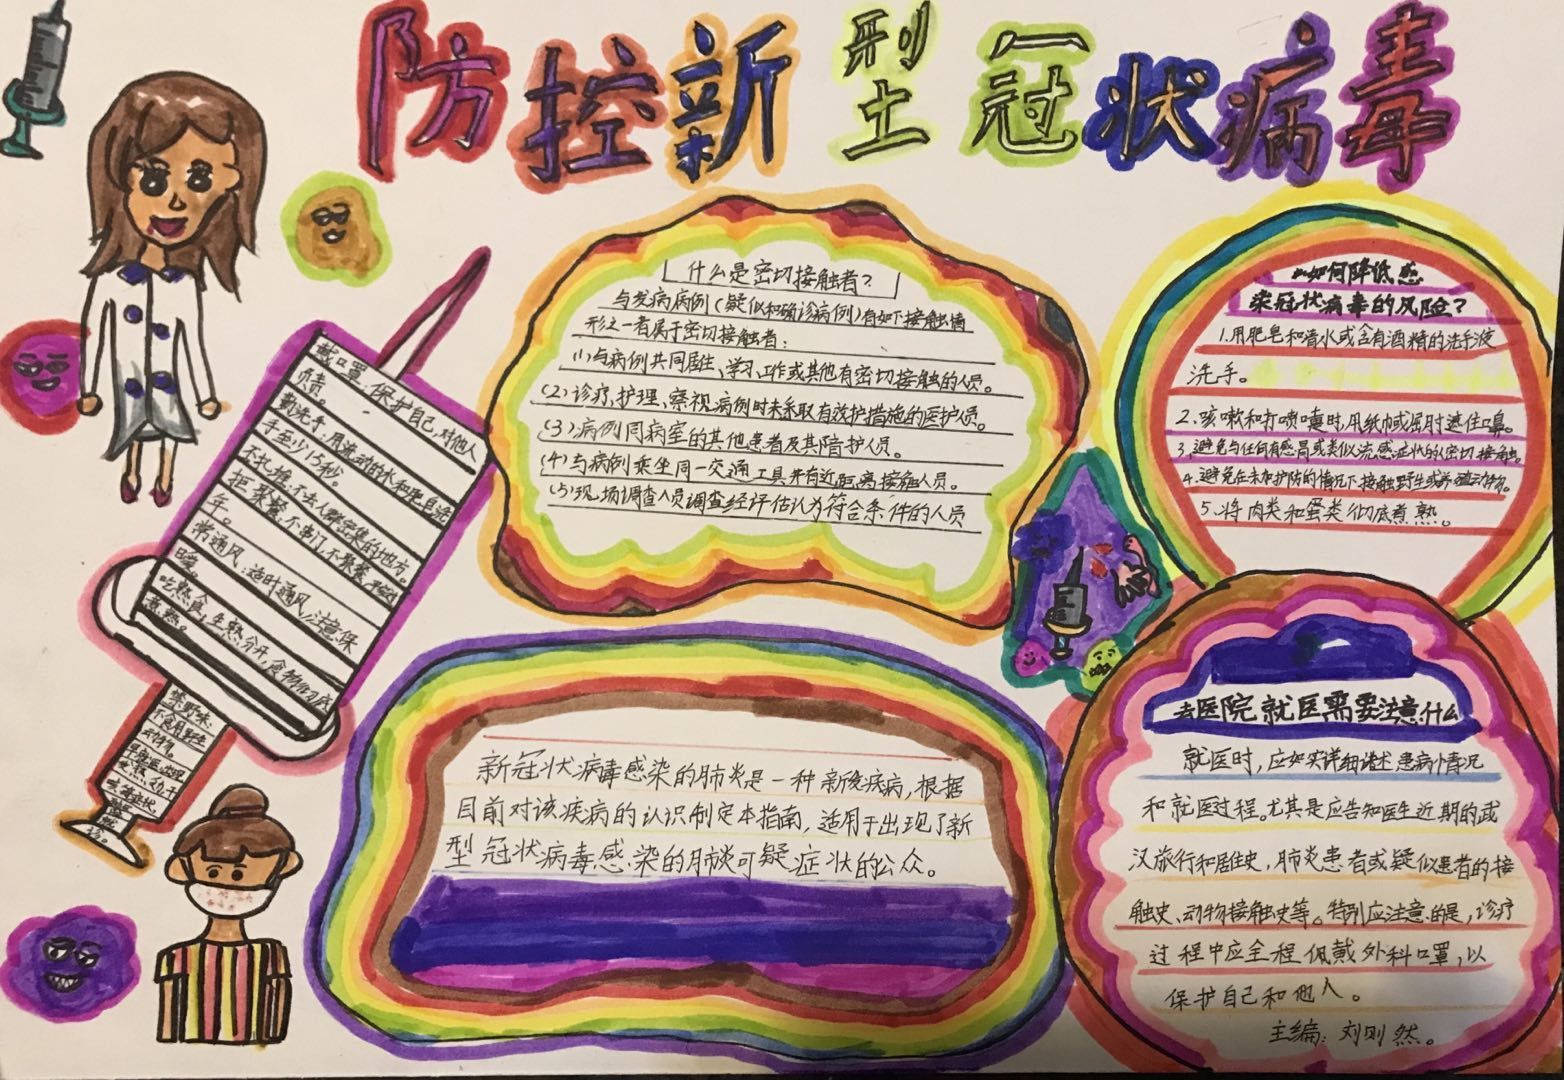 防控新型冠状病毒
什么是密切接触者?
与发病病例(疑似和确诊病例)有如下接触情
形之一者属于密切接触者:
(1)与病例共同居住、学习、工作或其他有密切接触的人员。
(2)诊疗、护理、察视病例时未采取有效护措施的医护人员。
(3)病例同病室的其他患者及其陪护人员。
(4)与病例乘坐同一交通工具并有近距离接触人员。
(5)现场调查人员调查经评估认为符合条件的人员
如何降低感
染冠状病毒的风险?
1.用肥皂和清水或含有酒精的洗手液
洗手。
2.咳嗽和打喷嚏时,用纸巾或屈肘遮住口鼻。
3.避免与任何有感冒或类似流感症状的人密切接触。
4.避免在未加护防的情况下接触野生或养殖动物。
5.将肉类和蛋类彻底煮熟。
戴口罩:保护自己,对他人
负责。
勤洗手:用流动的水和肥皂洗
手至少15秒。
不扎堆:不去人群密集的地方。
拒聚餐:不串门,不聚餐,平安过
年。
常通风:适时通风,注意保
暖。
吃熟食:生熟分开,食物彻底
煮熟。
禁野味:
不食用野生
动物。
早就医:出现
发热、乏力、干
咳等症状
诊。
新冠状病毒感染的肺炎是一种新发疾病,根据
目前对该疾病的认识制定本指南,适用于出现了新
型冠状病毒感染的肺炎可疑症状的公众。
去医院就医需要注意什么
就医时,应如实详细讲述患病情况
和就医过程。尤其是应告知医生近期的武
汉旅行和居住史,肺炎患者或疑似患者的接
触史、动物接触史等。特别应注意的是,诊疗
过程中应全程佩戴外科口罩,以
保护自己和他人。
主编:刘则然。